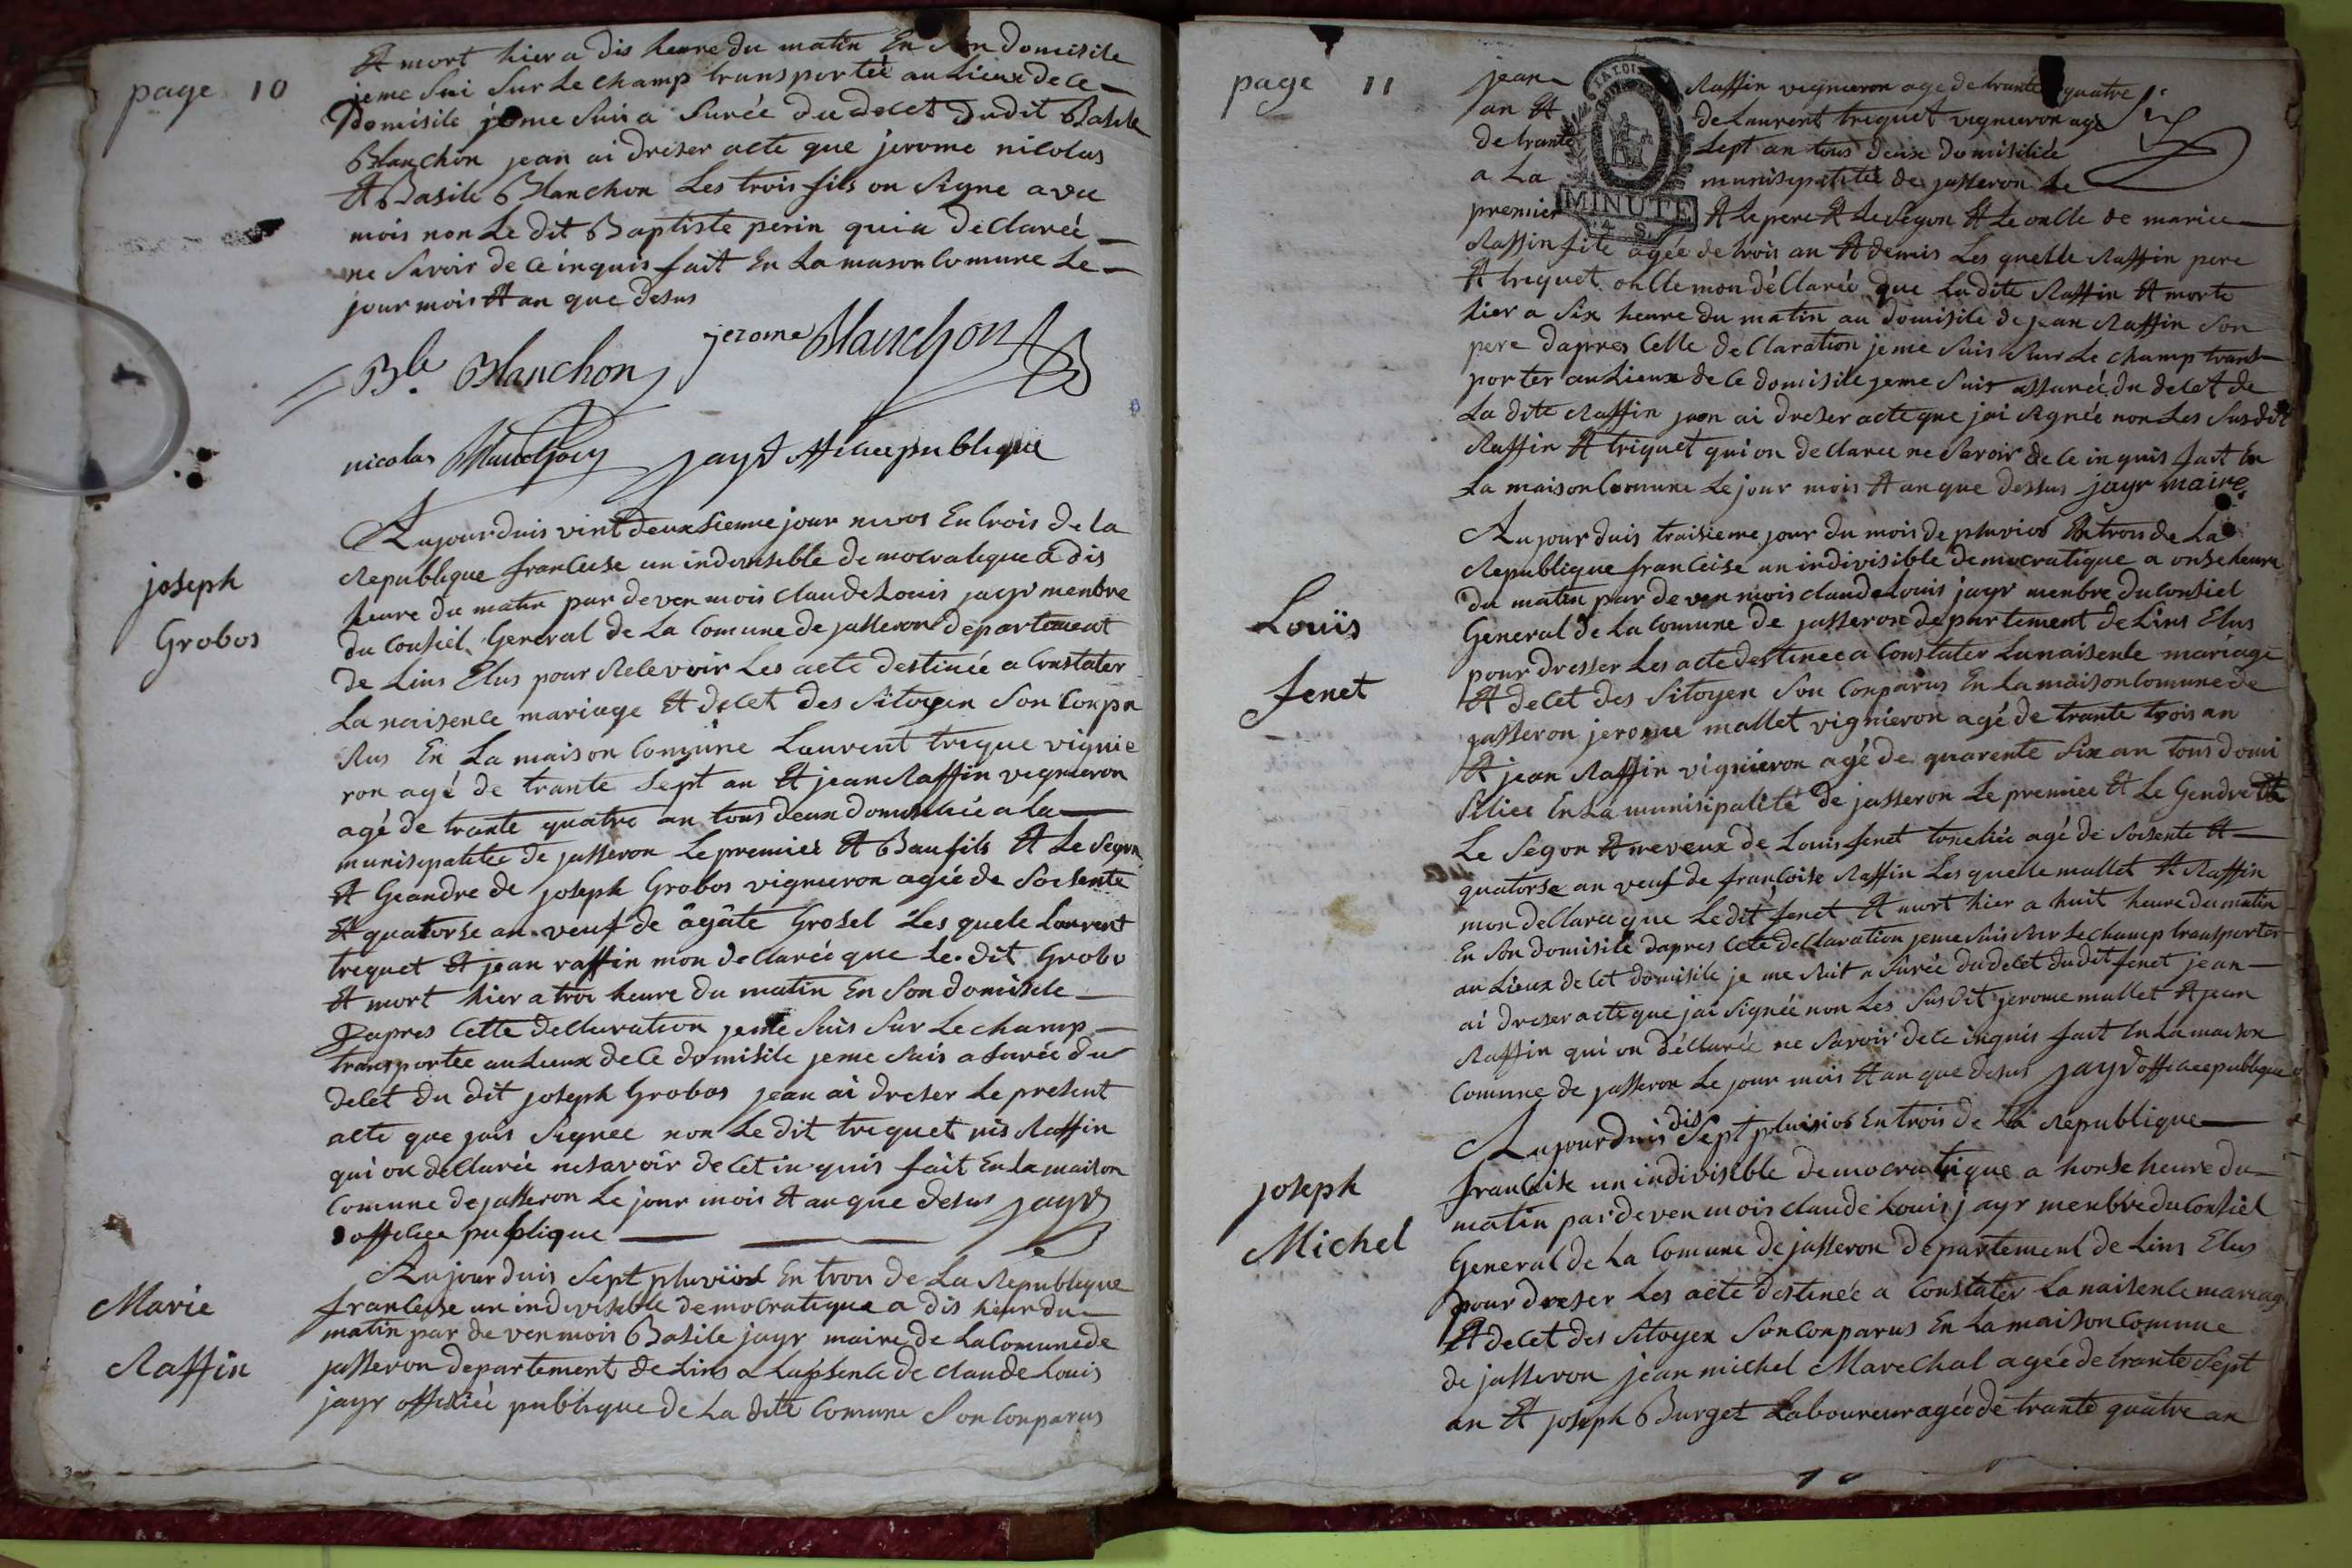 page 10
Et mort hier a dis heure du matin En Son domisile
jeme Sui Sur Le champ transportée au Lieux de ce
Domisile jeme Suis a Surée du decet Dudit Basile
Blanchon jean ai dreser acte que jerome nicolas
Et Basile Blanchon Les trois fils on Signe avec
mois non Le dit Baptiste perin qui a declarée
ne Savoir de ce inquis fait En La mason Comune Le
jour mois Et an que desus
Ble Blanchon jerome Blanchon
nicolas Blanchon jayr officee publique
joseph
Grobos
Aujourduis vint deuxsieme jour nivos En trois de la
Republique francaise un indivisible democratique a dis
heure du matin par deven mois claude Louis jayr menbre
du Consiel General de La Comune de jasseron departement
de Lins Elus pour Recevoir Les acte destinée a Constater
La naisence mariage Et decet des Sitoyen Son Conpa
Rus En La maison Comune Laurent treque vignie
ron agé de trante Sept an Et jean Raffin vignieron
agé de trante quatre an tous deux domisiliée a la
munisipalitée de jasseron Le premier Et Baufils Et Le Segon
Et Geandre de joseph Grobos vignieron agée de Soisente
Et quatorse an veuf de âgâte Grosel Les quele Laurent
trequet Et jean raffin mon declarée que Le dit Grobo
Et mort hier a troi heure du matin En Son domisile
Dapres Cette declaration jeme Suis Sur Le champ
transportée au Lieux de Ce domisile jeme Suis a Surée du
decet du dit joseph Grobos jean ai dreser Le present
acte que jais Signée non Le dit trequet nis Raffin
qui on declarée nesavoir de cet inquis fait En La maison
Comune de jasseron Le jour mois Et an que desus jayr
officee publique
Marie
Raffin
Aujourduis Sept pluvios En trois de La Republique
francaise un indivisible democratique a dis heur du
matin par deven mois Basile jayr maire de La Comune de
jasseron departement de Lins a Lapsence de claude Louis
jayr offisiée publique de La dite Comune Son Conparus
page 11
jean Raffin vignieron age de trante quatre
an Et de Laurent triquet vignieron age
de trante Sept an tous deux domisiliée
a La munisipalitée de jasseron Le
premier Et Le pere Et Le Segon Et Le oncle de marie
LA LOI
MINUTE
4 S.
Raffin file agée de trois an Et demis Les quelle Raffin pere
Et trequet oncle mon déclarée que Ladite Raffin Et morte
hier a Six heure du matin au domisile de jean Raffin Son
pere dapres Celle declaration jeme Suis Sur Le champ trans
porter au Lieux de Ce domisile jeme Suis assurée du decet de
La dite Raffin jean ai dreser acte que jai Signée non Les Susdit
Raffin Et triquet qui on declaree ne Savoir de Ce inquis fait En
La maison Comune Le jour mois Et an que dessus jayr maire
Louïs
fenet
Aujourduis traisieme jour du mois de pluvios En trois de La
Republique francaise un indivisible democratique a onse heure
du matin par deven mois claude Louis jayr menbre du Consiel
General de La Comune de jasseron departement de Lins Elus
pour dresser Les acte destinee a Constater La naisence mariage
Et decet des Sitoyen Son Conparus En La maison Comune de
jasseron jerome mallet vignieron agé de trante trois an
Et jean Raffin vignieron agé de quarente Six an tous domi
Siliee En La munisipalité de jasseron Le premiee Et Le Gendre Et
Le Segon Et neveux de Louis fenet toneliée agé de Soisente Et
quatorse an veuf de francoise Raffin Les quele mallet Et Raffin
mon declaree que Le dit fenet Et mort hier a huit heure du matin
En Son domisile dapres Cete declaration jeme Suis Sur Le champ transporter
au Lieux de Cet domisile je me Suit a Surée du decet du dit fenet jean
ai dreser acte que jai Signée non Les Susdit jerome mallet Et jean
Raffin qui on déclarée ne Savoir de Ce inquis fait En La maison
Comune de jasseron Le jour mois Et an que desus jayr officee publique
joseph
Michel
Aujourduis dis Sept pluvios En trois de La Republique
francaise un indivisible democratique a honse heure du
matin par deven mois claude Louis jayr menbre du Consiel
General de La Comune de jasseron departement de Lins Elus
pour dreser Les acte destinée a Constater La naisence mariag
Et decet des Sitoyen Son Conparus En La maison Comune
de jasseron jean michel Marechal agée de trante Sept
an Et joseph Burget Laboureur agée de trante quatre an